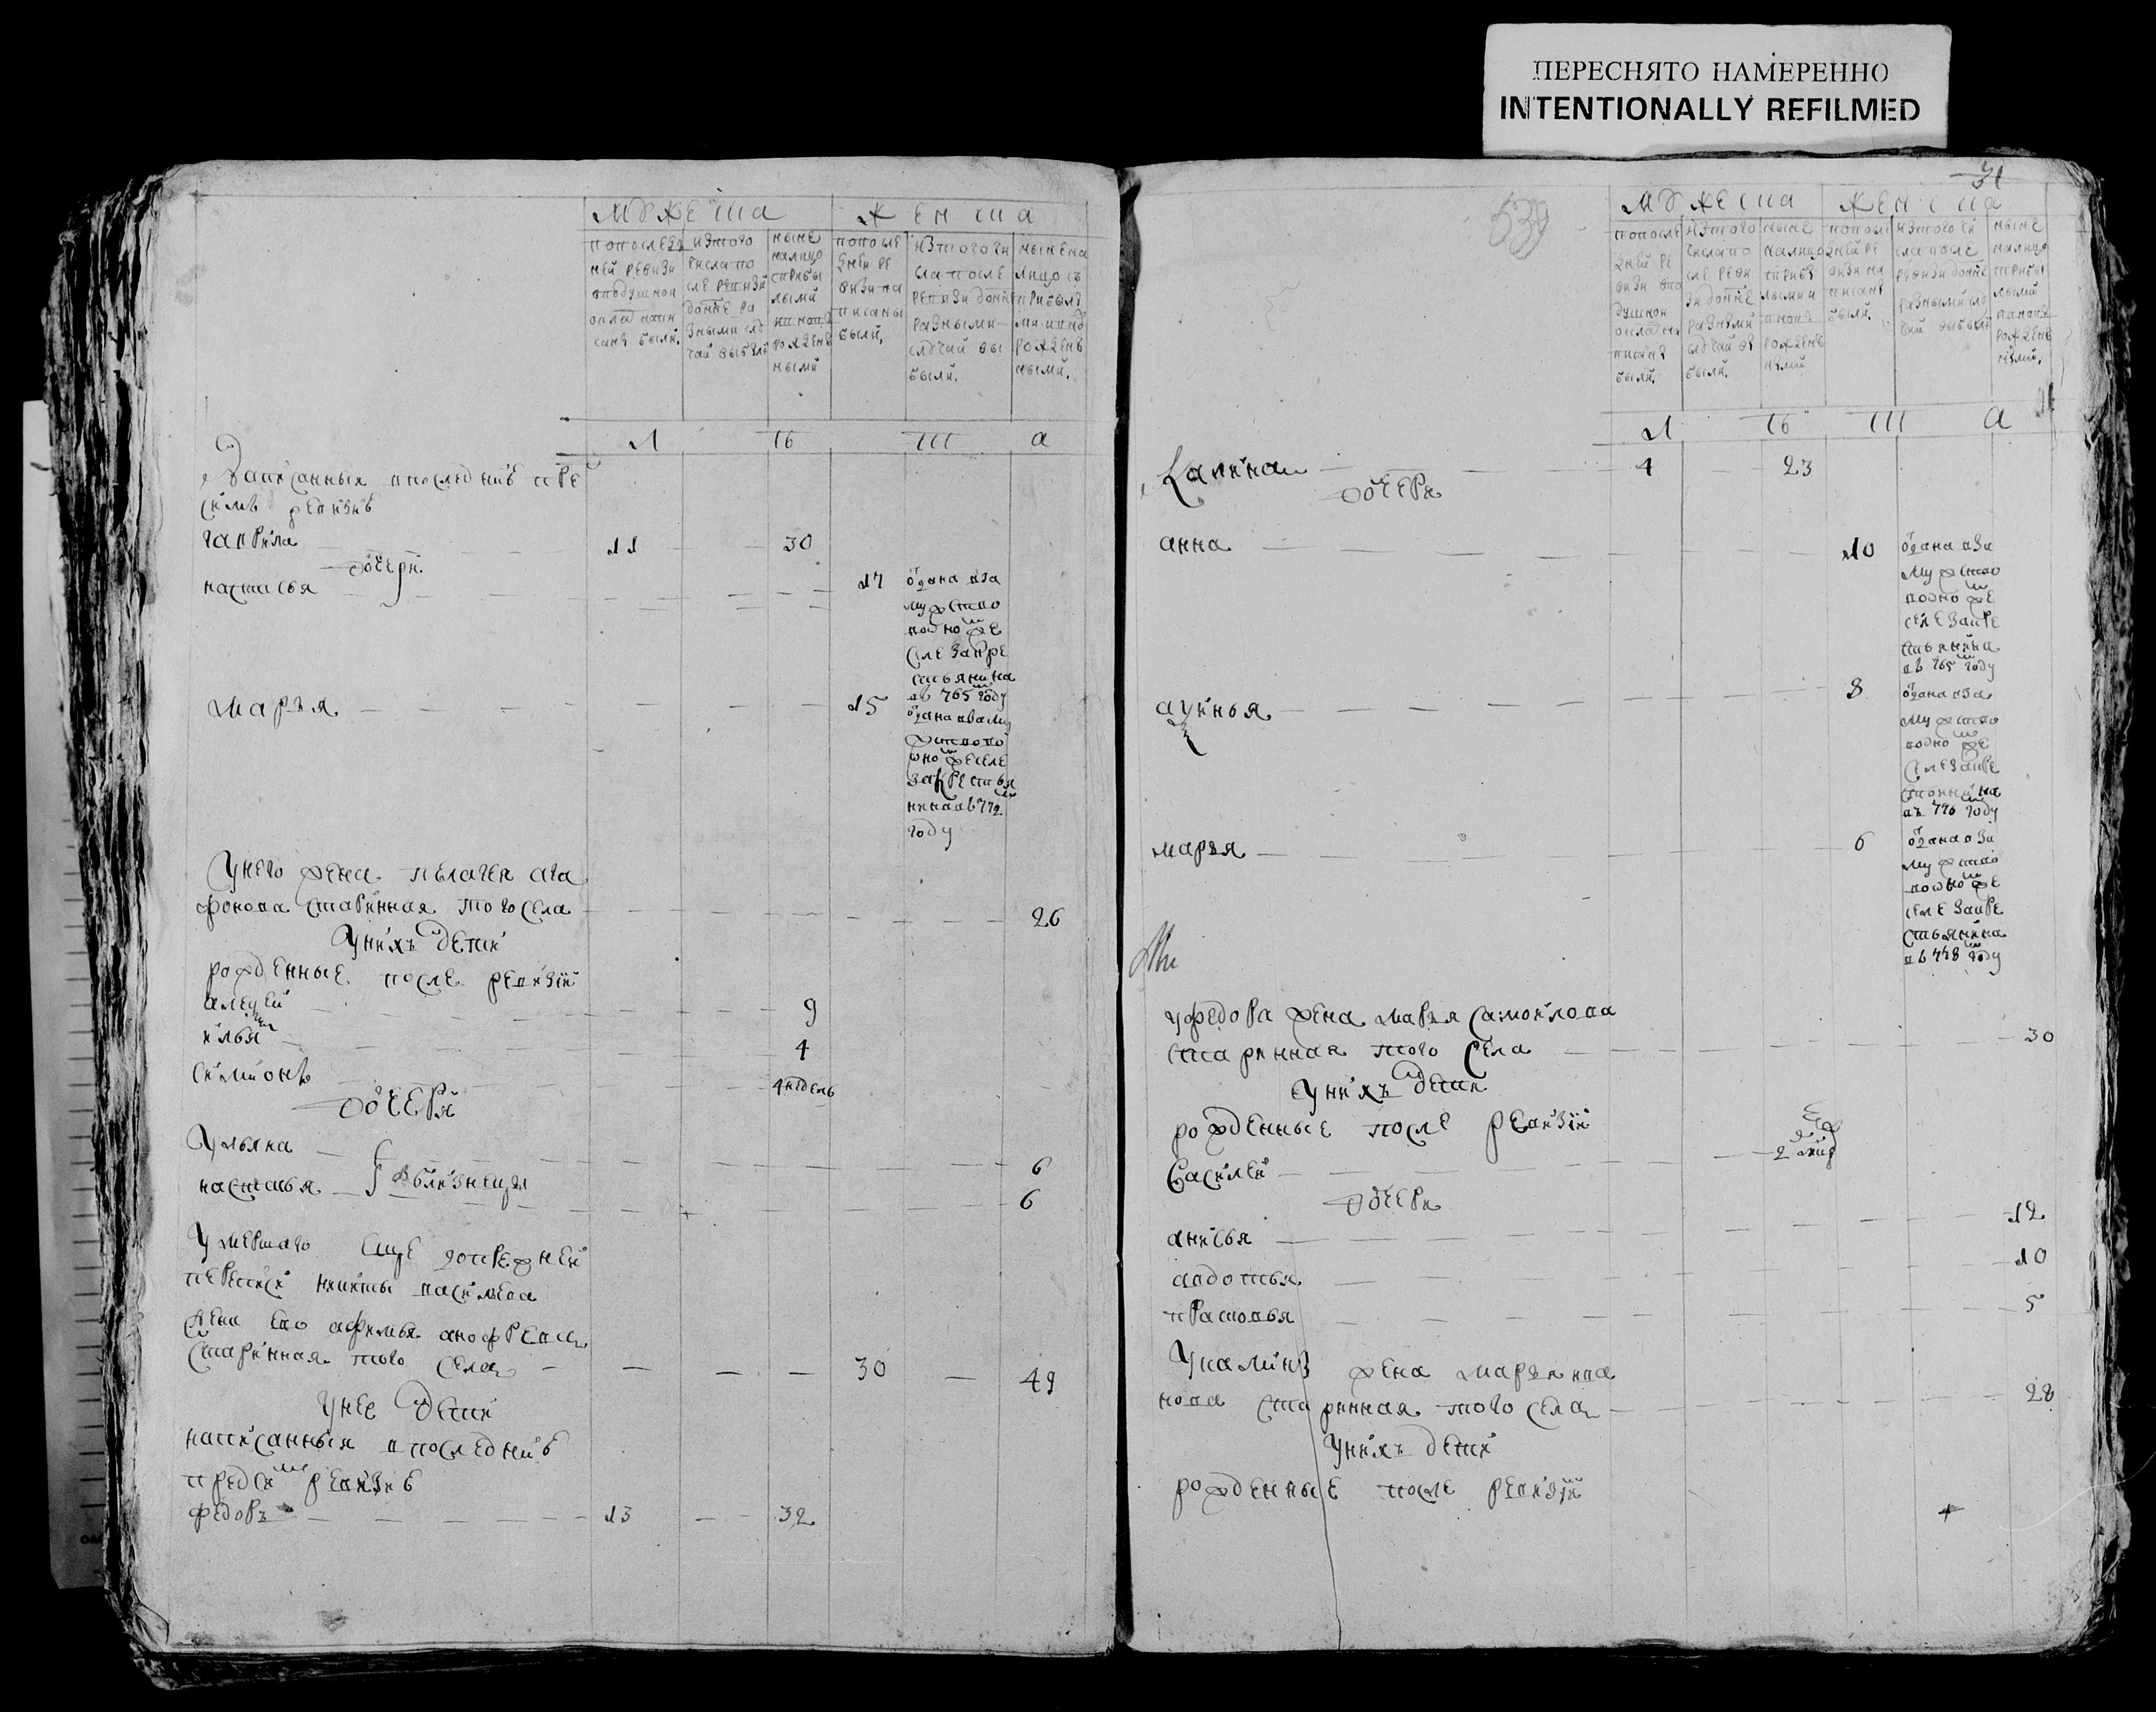 ПЕРЕСНЯТО НАМЕРЕННО
INTENTIONALLY REFILMED
мужеска
женска
попослед
ней ревизи
вподушной
оклад напи
саны были.
изтого
числа по
сле ревизи
доныне ра
зными слу
чаи выбыли
ныне
налицо
с прибы
лыми
и вновь
рожден
ными
попосле
дней ре
визи на
писаны
были,
изтого чи
сла после
ревизи доныне
разными
случаи вы
были.
ныне на
лицо съ
прибылы
ми и внов
рожден
ными.
Л ТЪ
Л А
написанныя впоследней пре
симъ ревизиѣ
гаврила 11 30
дочери
настасья 17
отдана вза
мужство
водно же
селе закре
стьянина
въ 765 году
марья 15
отдана вваму
жство во
дно же селе
за крестья
нина въ 772
году
У него жена пелагея ага
фонова старинная того села 26
У нихъ дети
рожденные после ревизiи
алексей 9
илья 4
симионъ 4 недель
дочери
Ульяна 6
настасья двойни близнецы 6
Умершаго еще допрежней
переписи никиты васильева
жена ево афимья
старинная того села 30 49
У нее дети
написанныя впоследней
предсим ревизиѣ
федоръ 13 32
539
31
мужеска
женска
попосле
дней ре
визи впо
душной
оклад на
писаны
были.
изтого
числа по
сле реви
зи доныне
разными
случаи вы
были.
ныне
налицо
с прибы
лыми и
вновь
рожден
ными
попосле
дней ре
визи на
писаны
были.
изтого чи
сла после
ревизи доныне
разными слу
чаи выбыли
ныне
налицо
с прибы
лыми
и вновь
рожден
ными,
Л ТЪ
Л А
Калина 4 23
дочери
анна 10
отдана вза
мужство
водно же
селе закре
стьянина
въ 765 году
аксинья 8
отдана вза
мужство
водно же
селе закре
стьянина
въ 776 году
марья 6
отдана вза
мужство
водно же
селе закре
стьянина
въ 778 году
У федора жена марья самойлова
старинная того села 30
У нихъ дети
рожденные после ревизiи
Василей 2
дочери
анисья 12
авдотья 10
прасковья 5
Укалины жена марья ива
нова старинная того села 28
У нихъ дети
рожденные после ревизiи